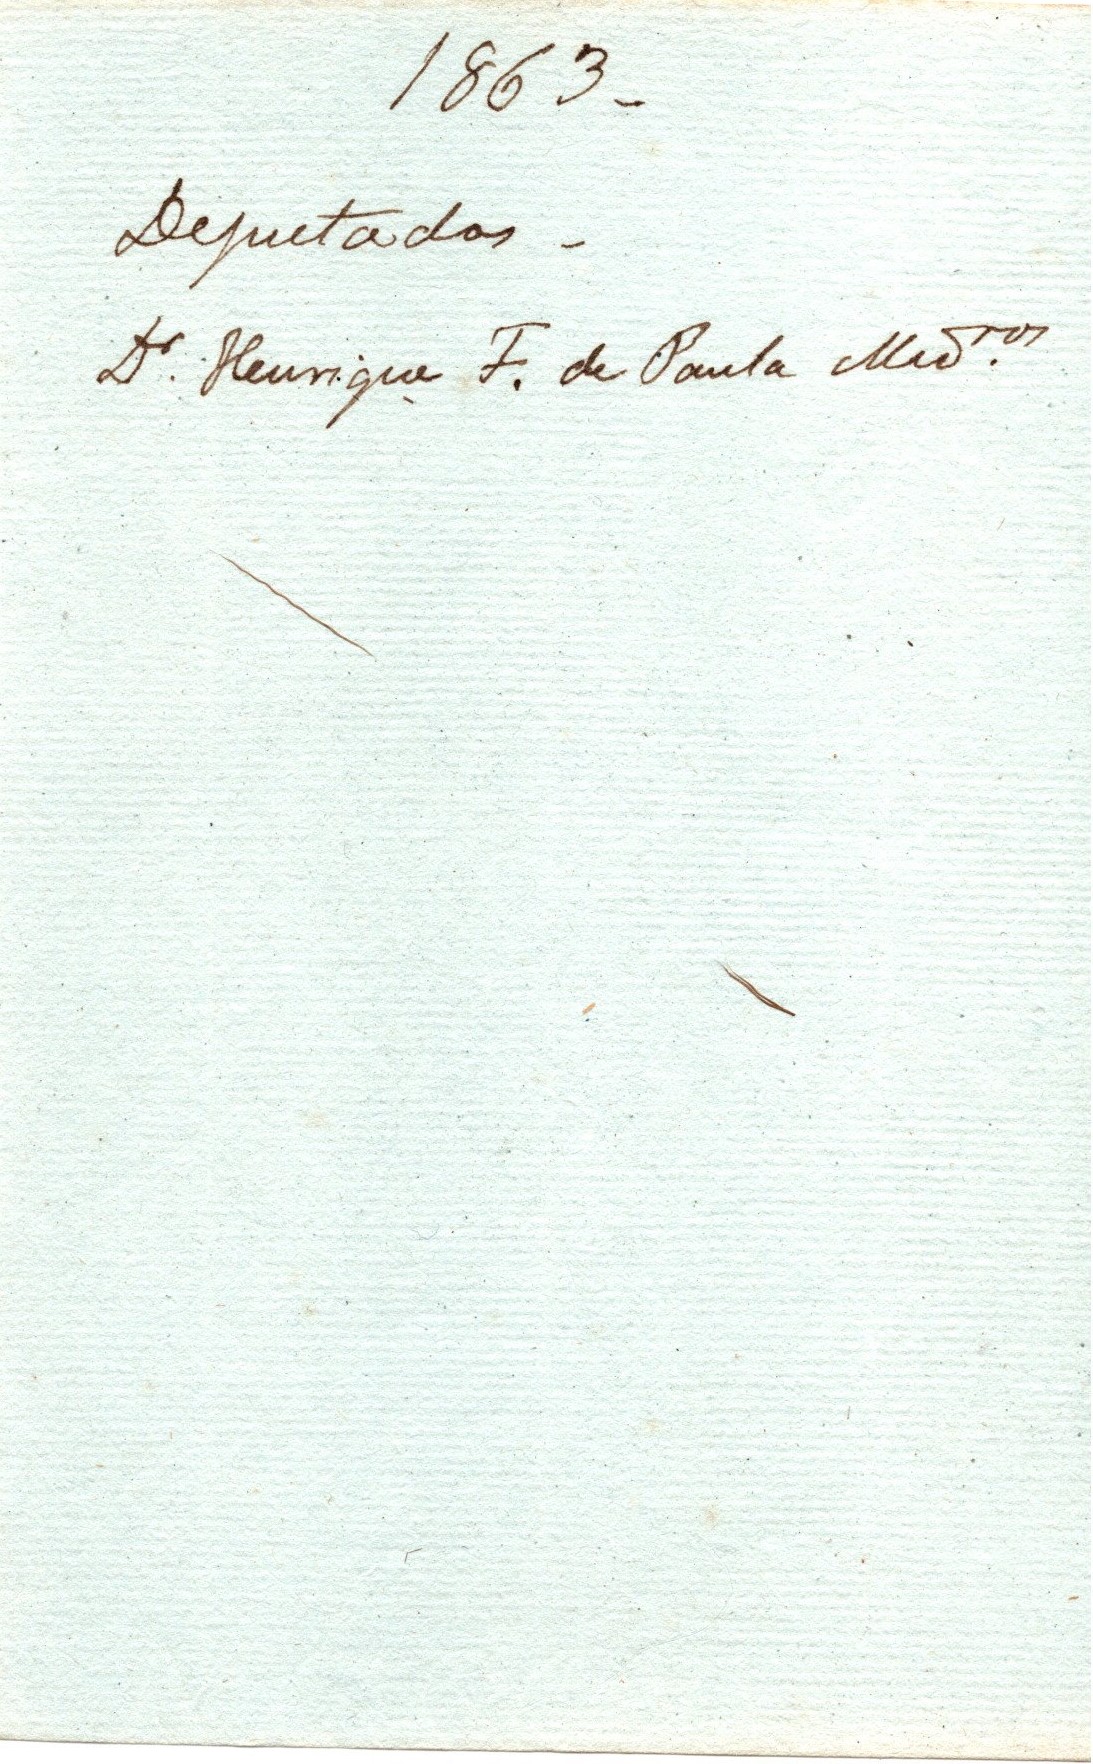 1863-
Deputados -
Dr. Henrique F. de Paula Med.ros